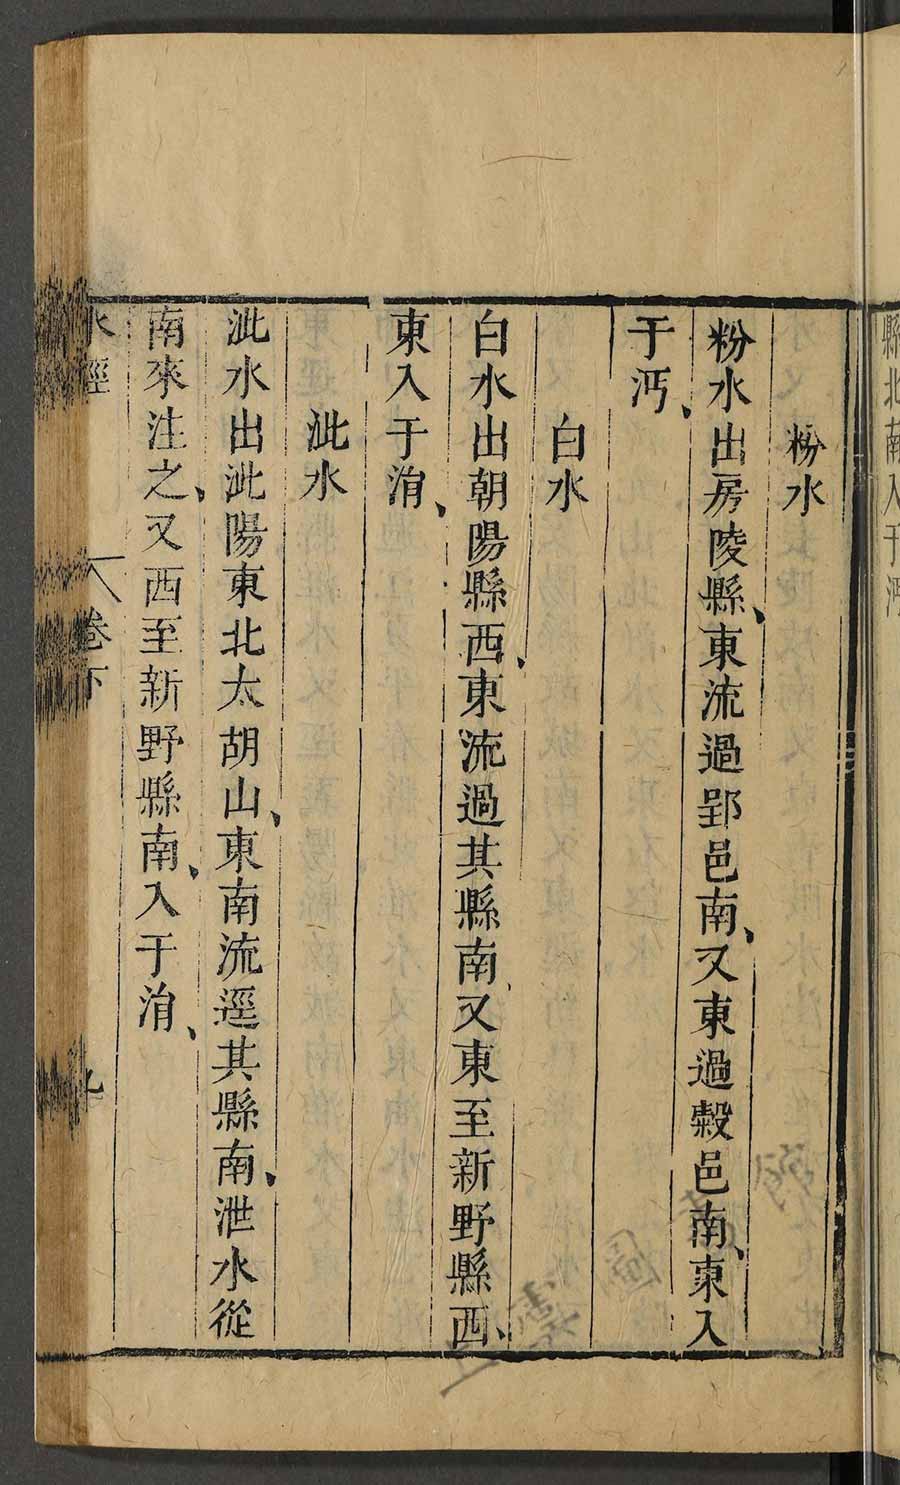 縣北南入于沔
粉水
粉水出房陵縣、東流過郢邑南、又東過穀邑南、東入
于沔、
白水
白水出朝陽縣西、東流過其縣南、又東至新野縣西、
東入于淯、
泚水
泚水出泚陽東北太胡山、東南流逕其縣南、泄水從
南來注之、又西至新野縣南、入于淯、
水經
卷下
九